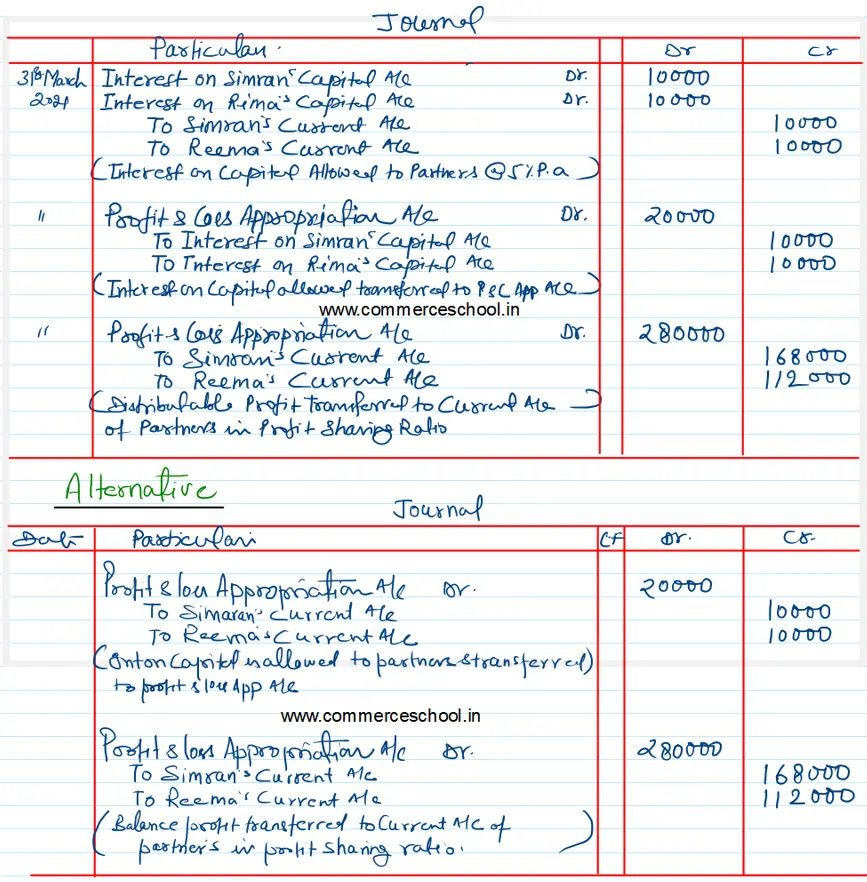 Journal
Particulars. Dr Cr
31st March Interest on Simran's Capital A/c Dr. 10000
2021 Interest on Rima's Capital A/c Dr. 10000
To Simran's Current A/c 10000
To Reema's Current A/c 10000
(Interest on Capital Allowed to Partners @5%P.a)
" Profit & Loss Appropriation A/c Dr. 20000
To Interest on Simran's Capital A/c 10000
To Interest on Rima's Capital A/c 10000
(Interest on Capital allowed transferred to P&L App A/c)
www.commerceschool.in
" Profit & Loss Appropriation A/c Dr. 280000
To Simran's Current A/c 168000
To Reema's Current A/c 112000
(Distributable Profit Transferred to Current A/c)
of Partners in Profit Sharing Ratio
Alternative
Journal
Date Particulars LF Dr. Cr.
Profit & loss Appropriation A/c Dr. 20000
To Simaran's Current A/c 10000
To Reema's Current A/c 10000
(Int on Capital is allowed to partners & transferred)
to profit & loss App A/c
www.commerceschool.in
Profit & loss Appropriation A/c Dr. 280000
To Simran's Current A/c 168000
To Reema's Current A/c 112000
(Balance profit transferred to Current A/C of
partner's in profit sharing ratio.)